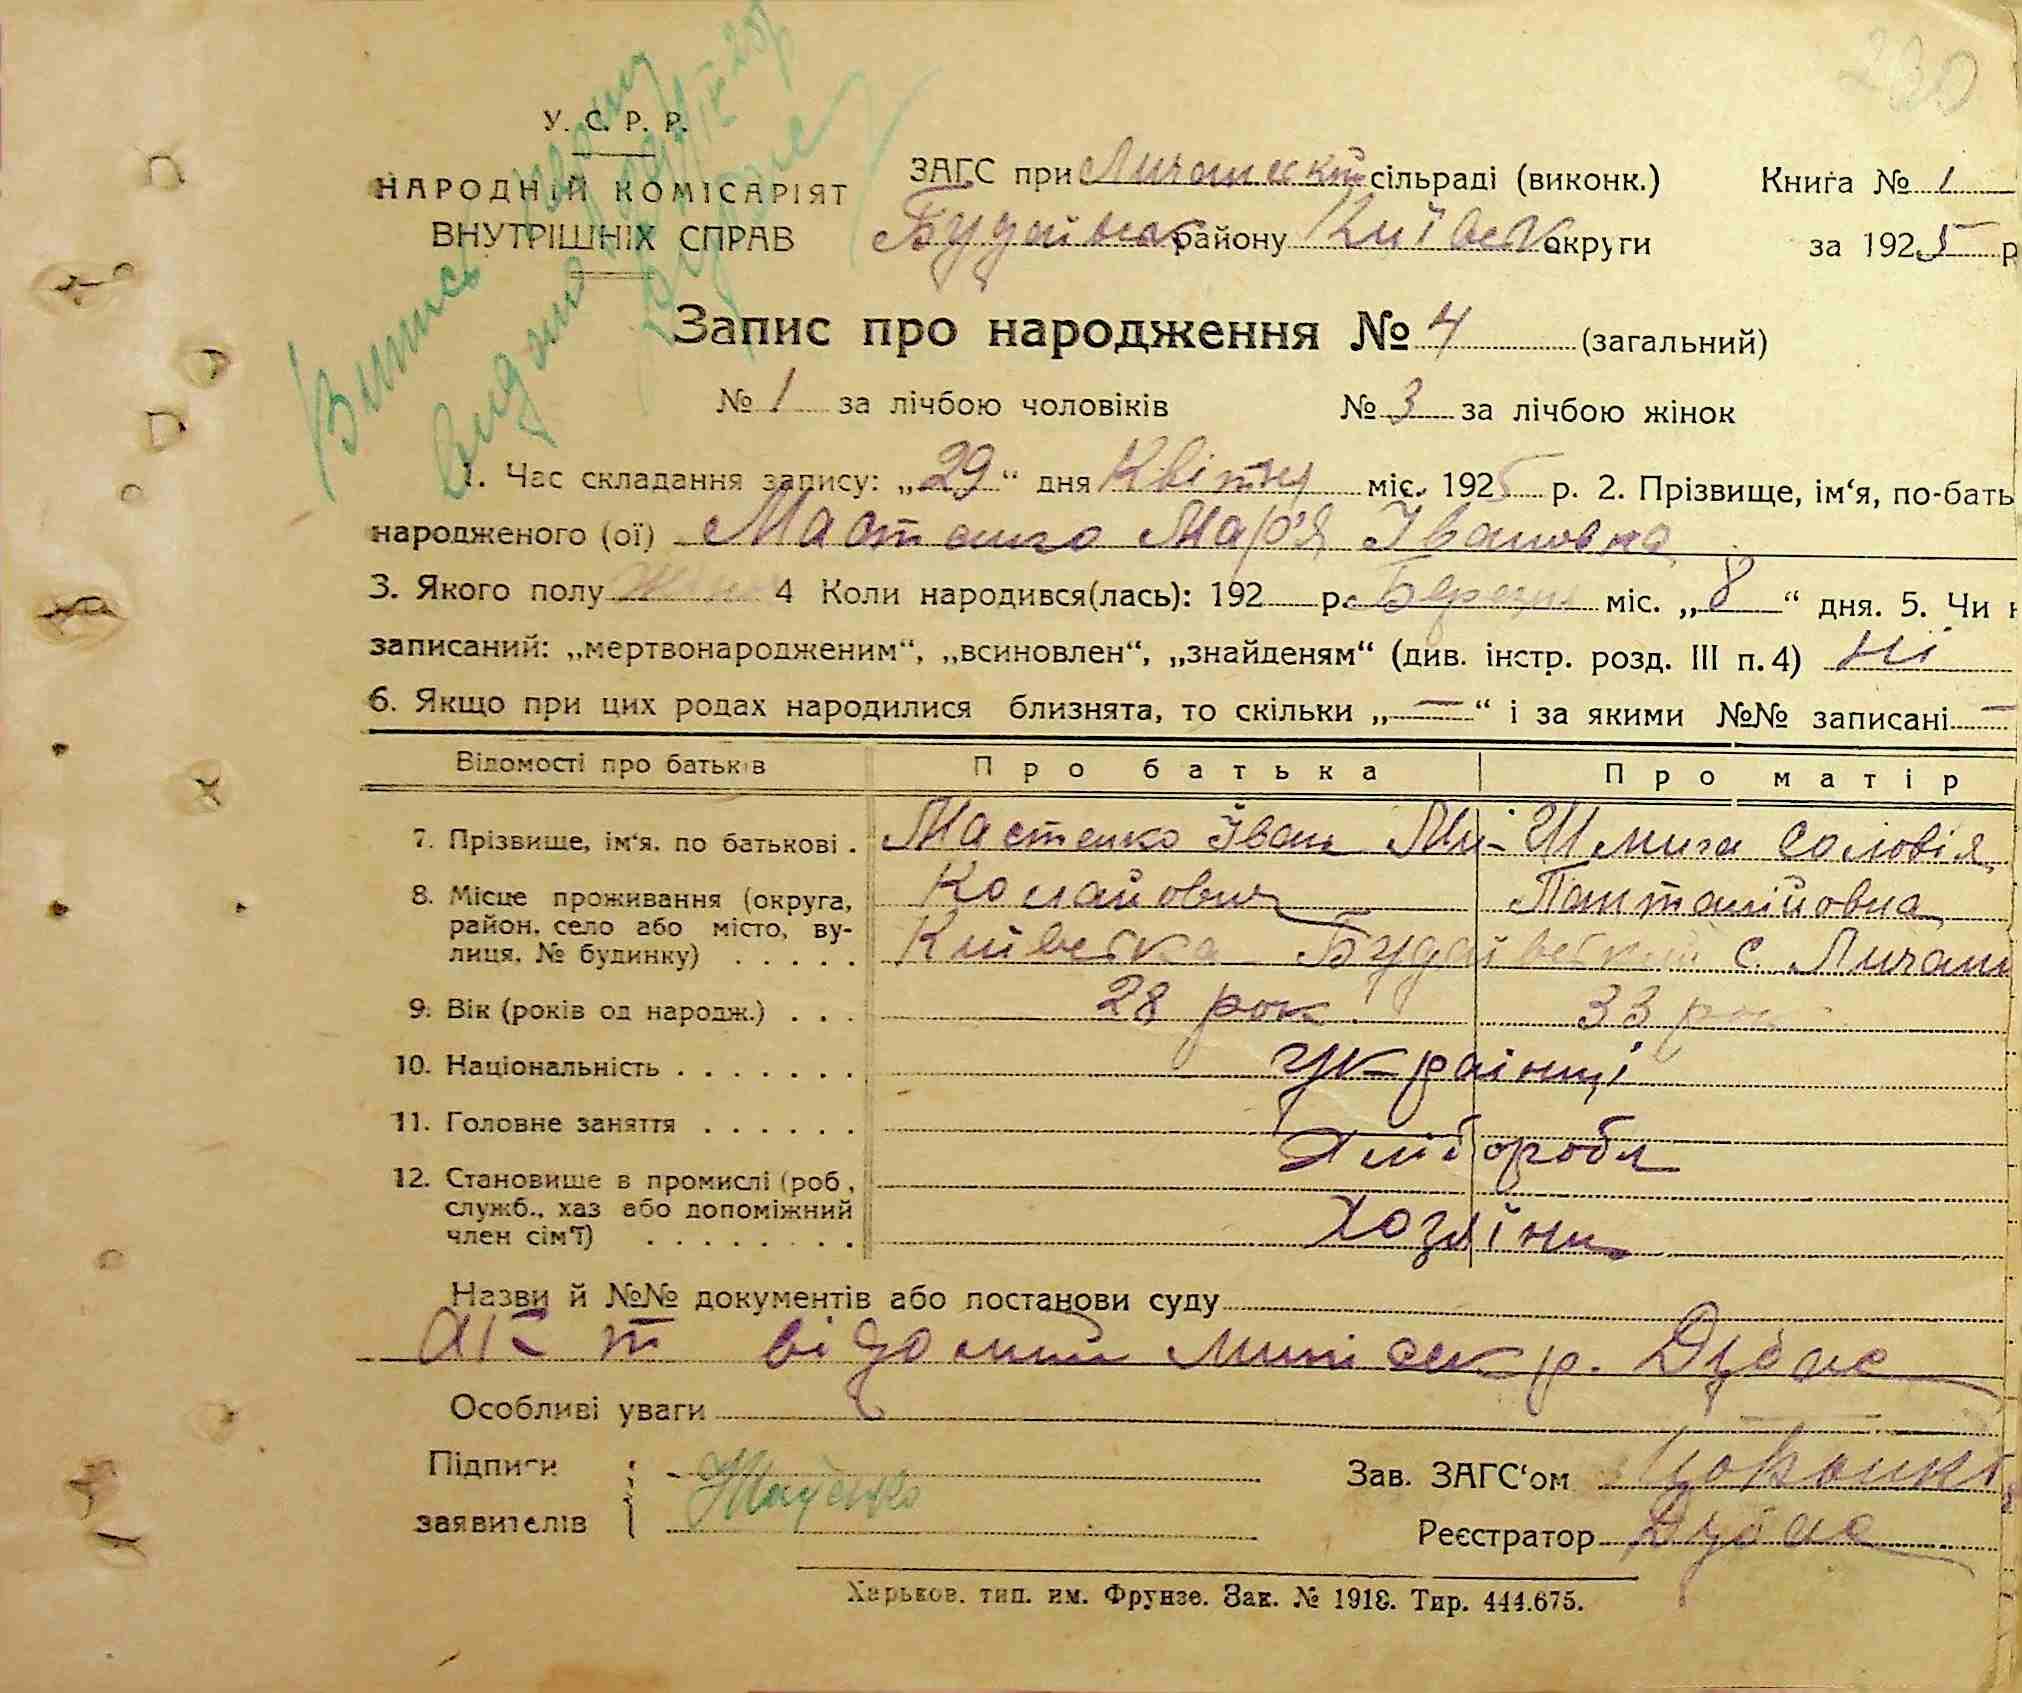 230
У. С. Р. Р.
НАРОДНІЙ КОМІСАРІЯТ
ВНУТРІШНІХ СПРАВ
Витись
видано
ЗАГС при сільраді (виконк.) Книга № 1
Будаївськ району Київськ округи за 1925 р
Запис про народження № 4 (загальний)
№ 1 за лічбою чоловіків № 3 за лічбою жінок
1. Час складання запису: „29“ дня Квітня міс. 1925 р. 2. Прізвище, ім‘я, по-бать
народженого (ої) Мар'я Івановна
3. Якого полу Жіно 4 Коли народився(лась): 192 р. Березня міс. „8“ дня. 5. Чи н
записаний: „мертвонародженим“, „всиновлен“, „знайденям“ (див. інстр. розд. III п. 4) Ні
6. Якщо при цих родах народилися близнята, то скільки „—“ і за якими №№ записані —
Відомості про батьків Про батька Про матір
7. Прізвище, ім‘я. по батькові . Мастенко Іван Ми- Шмига Соловія
8. Місце проживання (округа, Колайович Панталійовна
район. село або місто, ву-
лиця. № будинку) . . . . . Київська Будаївський с. Личан
9. Вік (років од народж.) . . . 28 рок 33 рок
10. Національність . . . . . . . Українці
11. Головне заняття . . . . . . Хлібороби
12. Становище в промислі (роб.,
служб., хаз або допоміжний
член сім‘ї) . . . . . . . . Хозяіни
Назви й №№ документів або постанови суду
Акт відомий мині секр. Дубас
Особливі уваги
Підписи
заявителів
Зав. ЗАГС‘ом
Реєстратор Дубас
Харьков. тип. им. Фрунзе. Зак. № 1918. Тир. 444.675.